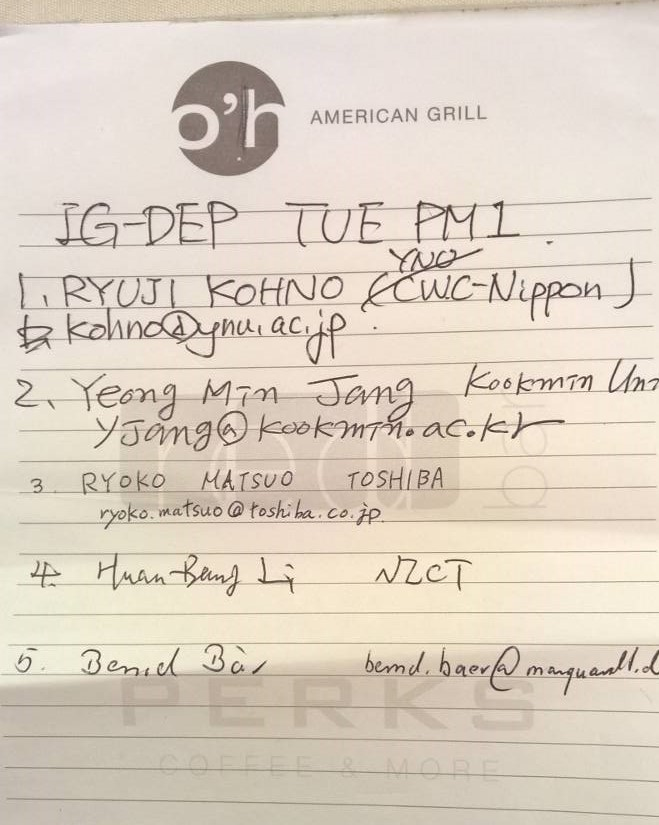 o'h AMERICAN GRILL
IG-DEP TUE PM1.
YNU
1. RYUJI KOHNO (CWC-Nippon)
kohno@ynu.ac.jp
2. Yeong Min Jang Kookmin Uni
yjang@kookmin.ac.kr
3. RYOKO MATSUO TOSHIBA
ryoko.matsuo@toshiba.co.jp
4. Huan-Bang Li NICT
5. Bernd Bär bernd.baer@marquardt.d
PERKS
COFFEE & MORE